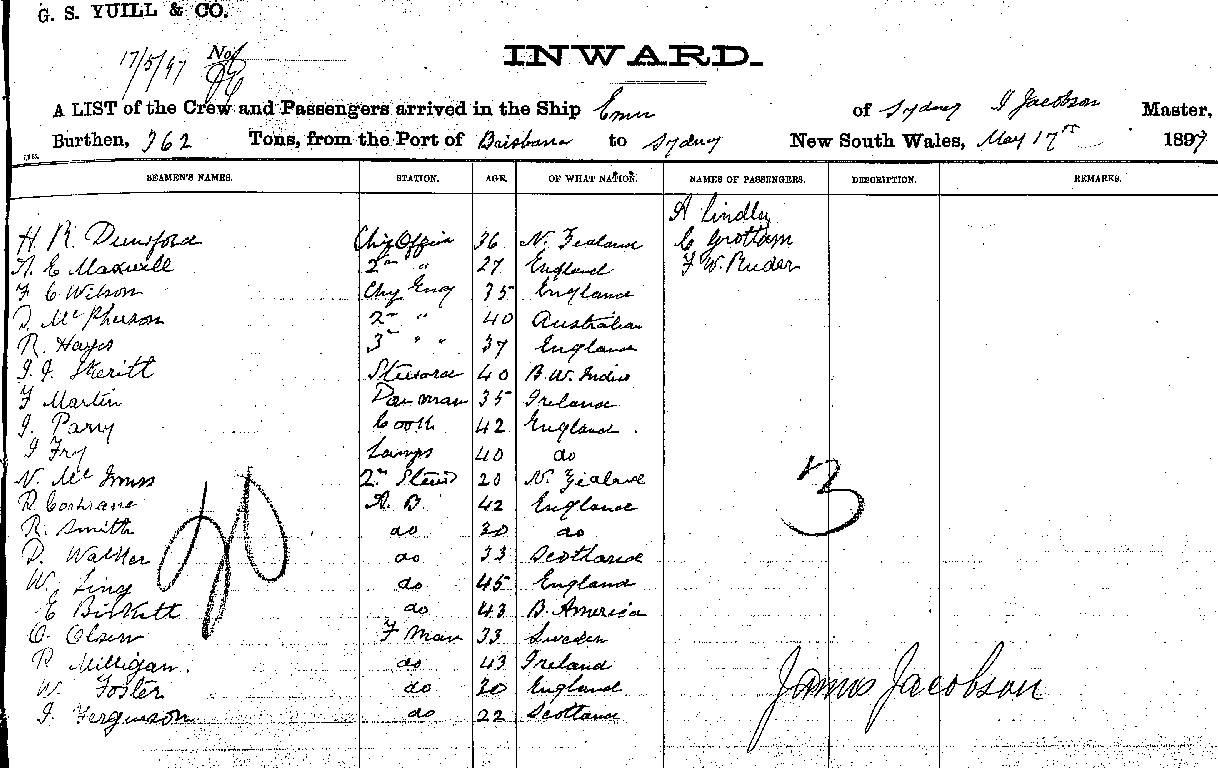 G. S. YUILL & CO.
17/5/97 No/
INWARD.
A LIST of the Crew and Passengers arrived in the Ship Emu of Sydney J Jacobson Master,
Burthen, 362 Tons, from the Port of Brisbane to Sydney New South Wales, May 17th 1897
SEAMEN'S NAMES. STATION. AGE. OF WHAT NATION. NAMES OF PASSENGERS. DESCRIPTION. REMARKS.
A Lindley
H. R. Dunsford Chf Officer 36 N. Zealand C Grottam
A. E Maxwell 2nd " 27 England F W. Ruder
F C Wilson Chf Eng 35 England
D. McPherson 2nd " 40 Australian
R. Hayes 3rd " " 37 England
J. J. Skeritt Steward 40 B. W. Indies
F Martin 35 Ireland
J. Parry Cook 42 England.
J Fry Lamps 40 do
N. McInnss 2nd Stewd 20 N. Zealand
D. Cochrane A. B. 42 England
R. Smith do 30 do
D. Walker do 33 Scotland
W. Ling do 45 England
E Birkett do 43 B. America
O. Olsen F Man 33 Sweden
D. Milligan. do 43 Ireland
W. Foster do 30 England
J. Ferguson do 22 Scotland
3
James Jacobson